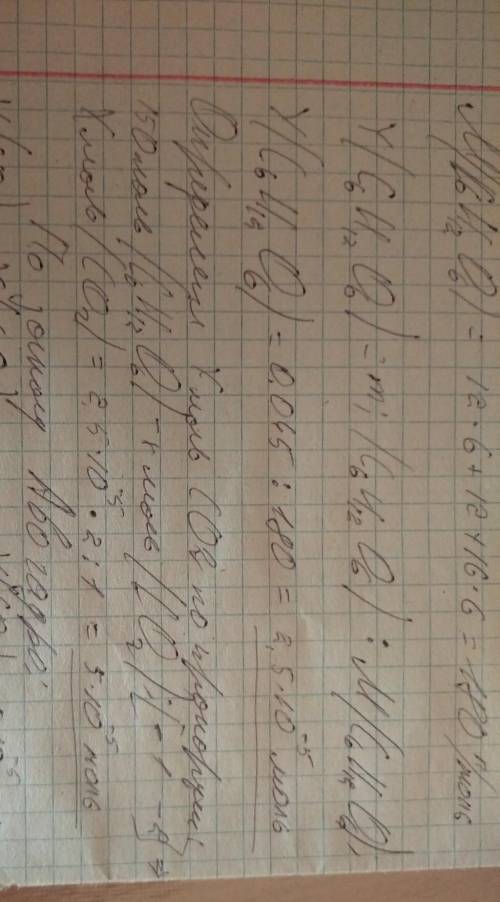 M(C₆H₁₂O₆) = 12·6+12+16·6 = 180 г/моль
Y(C₆H₁₂O₆) = m(C₆H₁₂O₆) : M(C₆H₁₂O₆)
Y(C₆H₁₂O₆) = 0,045 : 180 = 2,5·10⁻⁵ моль
Определяем X моль CO₂ по пропорции
моль (C₆H₁₂O₆) – x моль (CO₂) = 1 – 2 ⇒
X моль (CO₂) = 2,5·10⁻⁵ · 2 : 1 = 5·10⁻⁵ моль
По закону Авогадро: